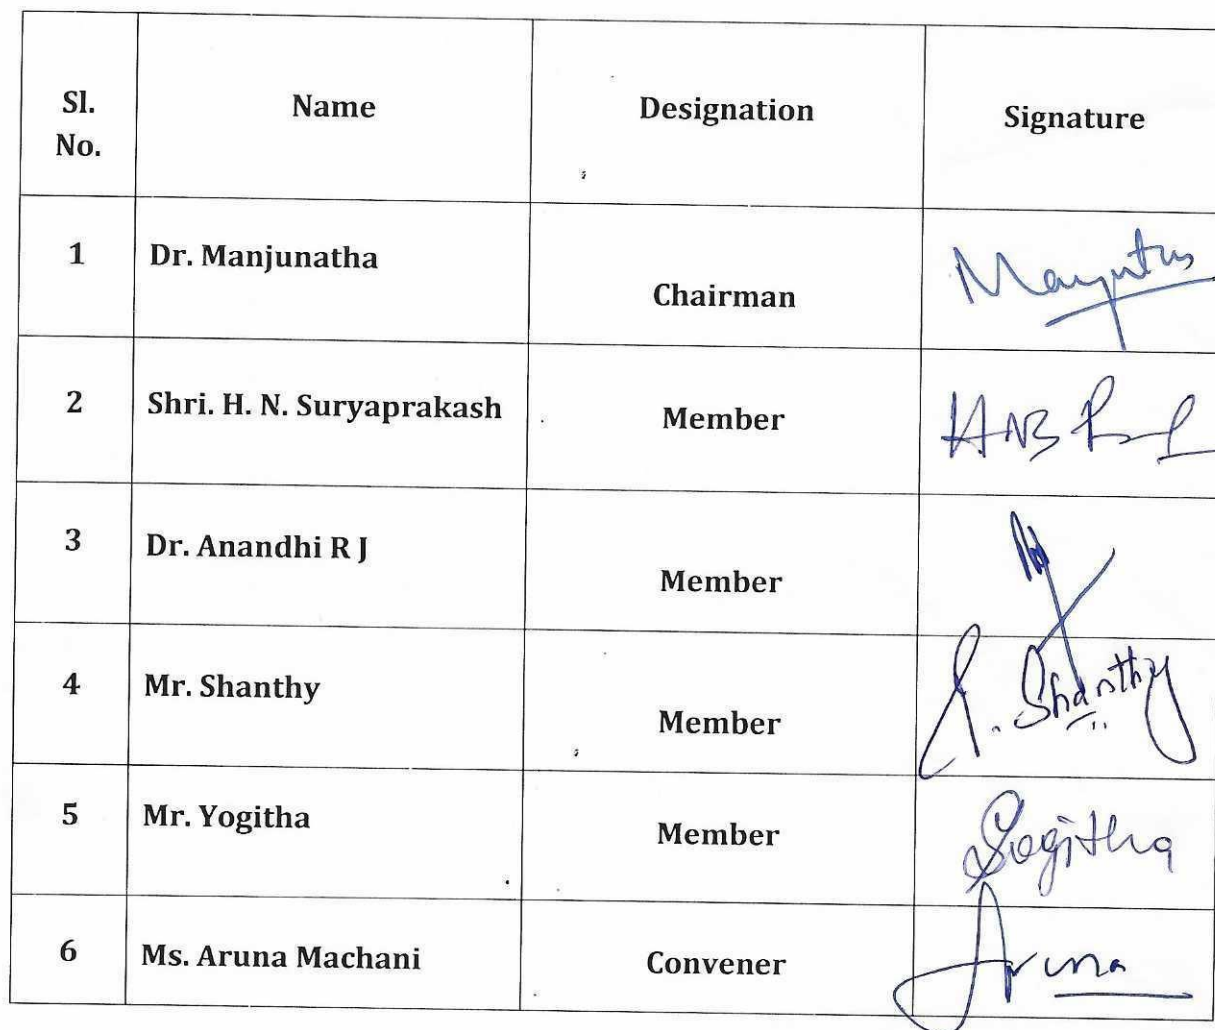 Sl. No. Name Designation Signature
1 Dr. Manjunatha Chairman
2 Shri. H. N. Suryaprakash Member
3 Dr. Anandhi R J Member
4 Mr. Shanthy Member S. Shanthy
5 Mr. Yogitha Member Yogitha
6 Ms. Aruna Machani Convener Aruna